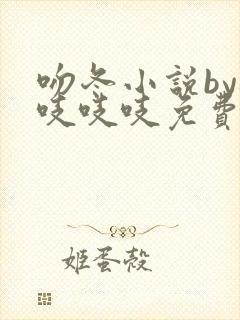 吻冬小説by
吱吱吱免費
姬蛋殼